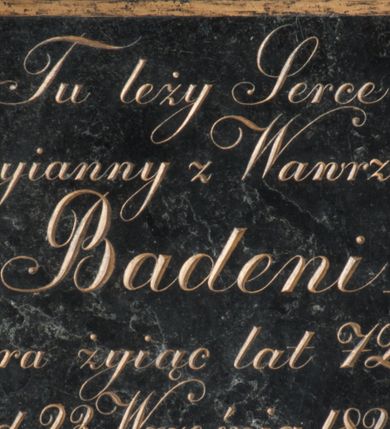 Tu leży Serce
yianny z Wawrz
Badeni
ra żyiąc lat 72
d 23 Września 182